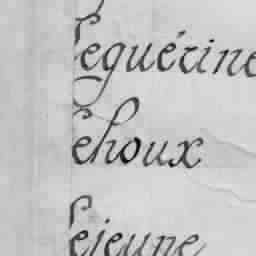 Leguérine
Lehoux
Lejeune